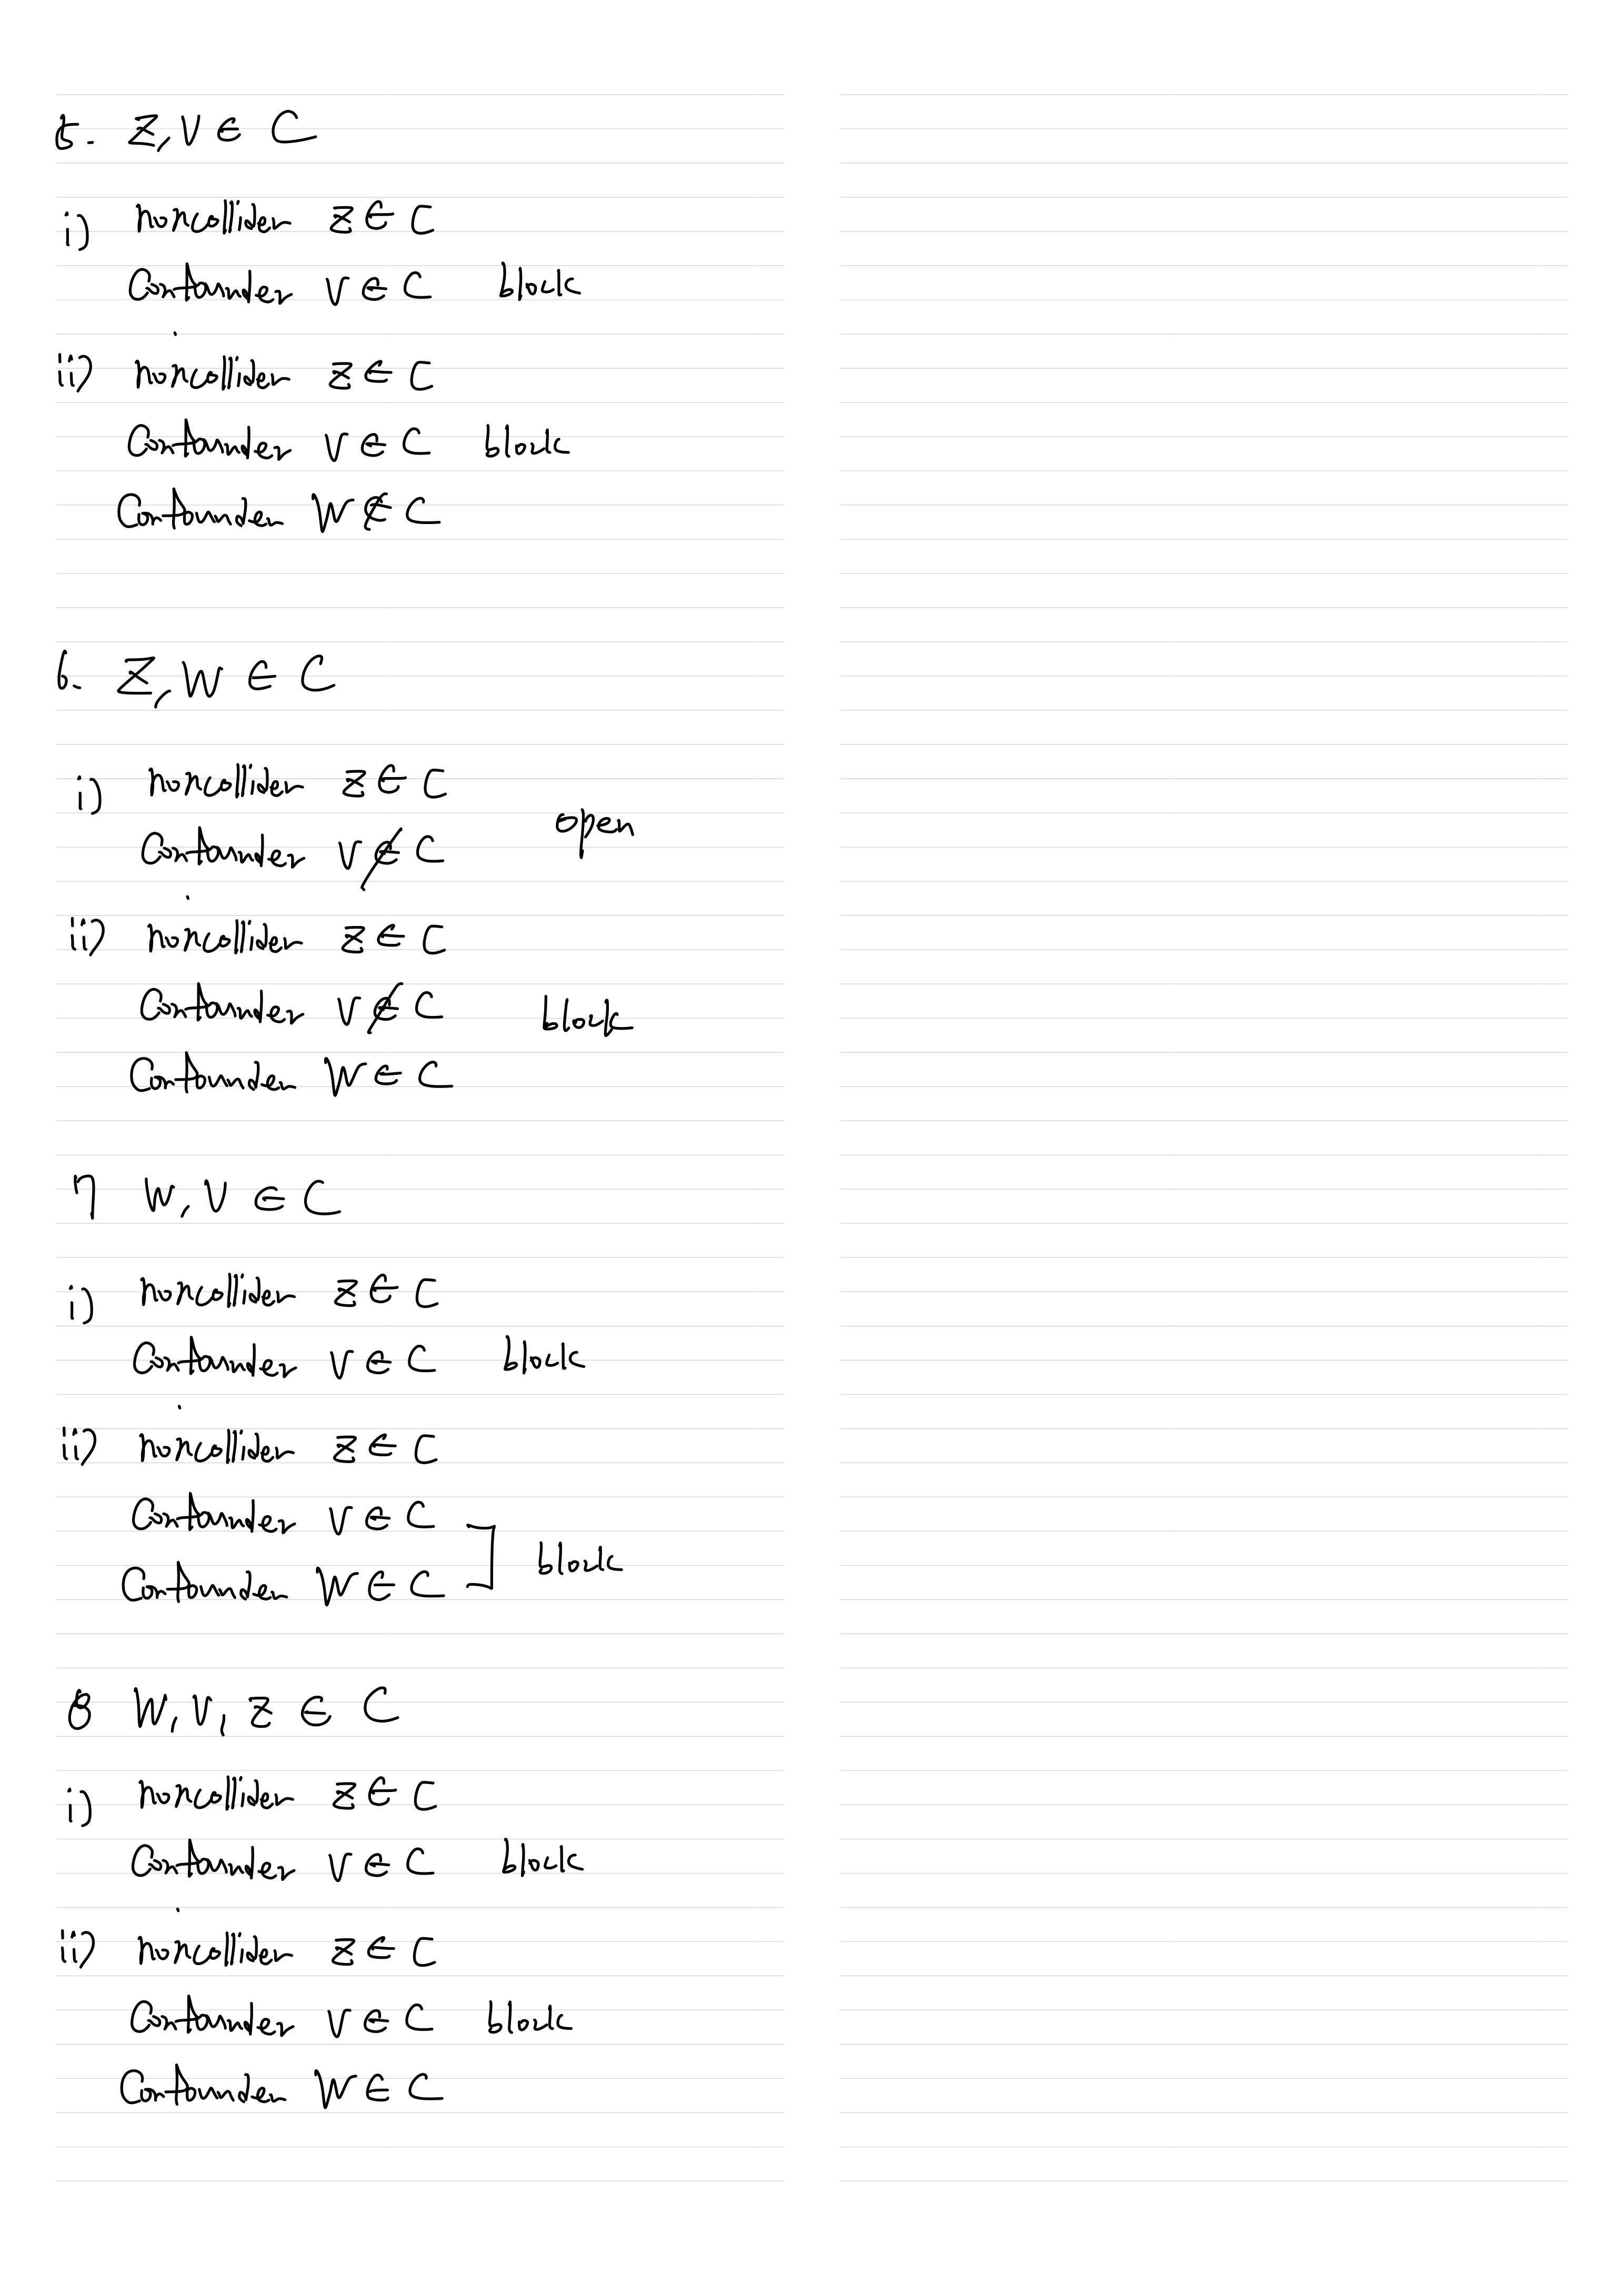 5. Z, V ∈ C
i) noncollider Z ∈ C
Confounder V ∈ C block
ii) noncollider Z ∈ C
Confounder V ∈ C block
Confounder W ∉ C
6. Z, W ∈ C
i) noncollider Z ∈ C
open
Confounder V ∉ C
ii) noncollider Z ∈ C
Confounder V ∉ C block
Confounder W ∈ C
7 W, V ∈ C
i) noncollider Z ∈ C
Confounder V ∈ C block
ii) noncollider Z ∈ C
Confounder V ∈ C
Confounder W ∈ C ] block
8 W, V, Z ∈ C
i) noncollider Z ∈ C
Confounder V ∈ C block
ii) noncollider Z ∈ C
Confounder V ∈ C block
Confounder W ∈ C